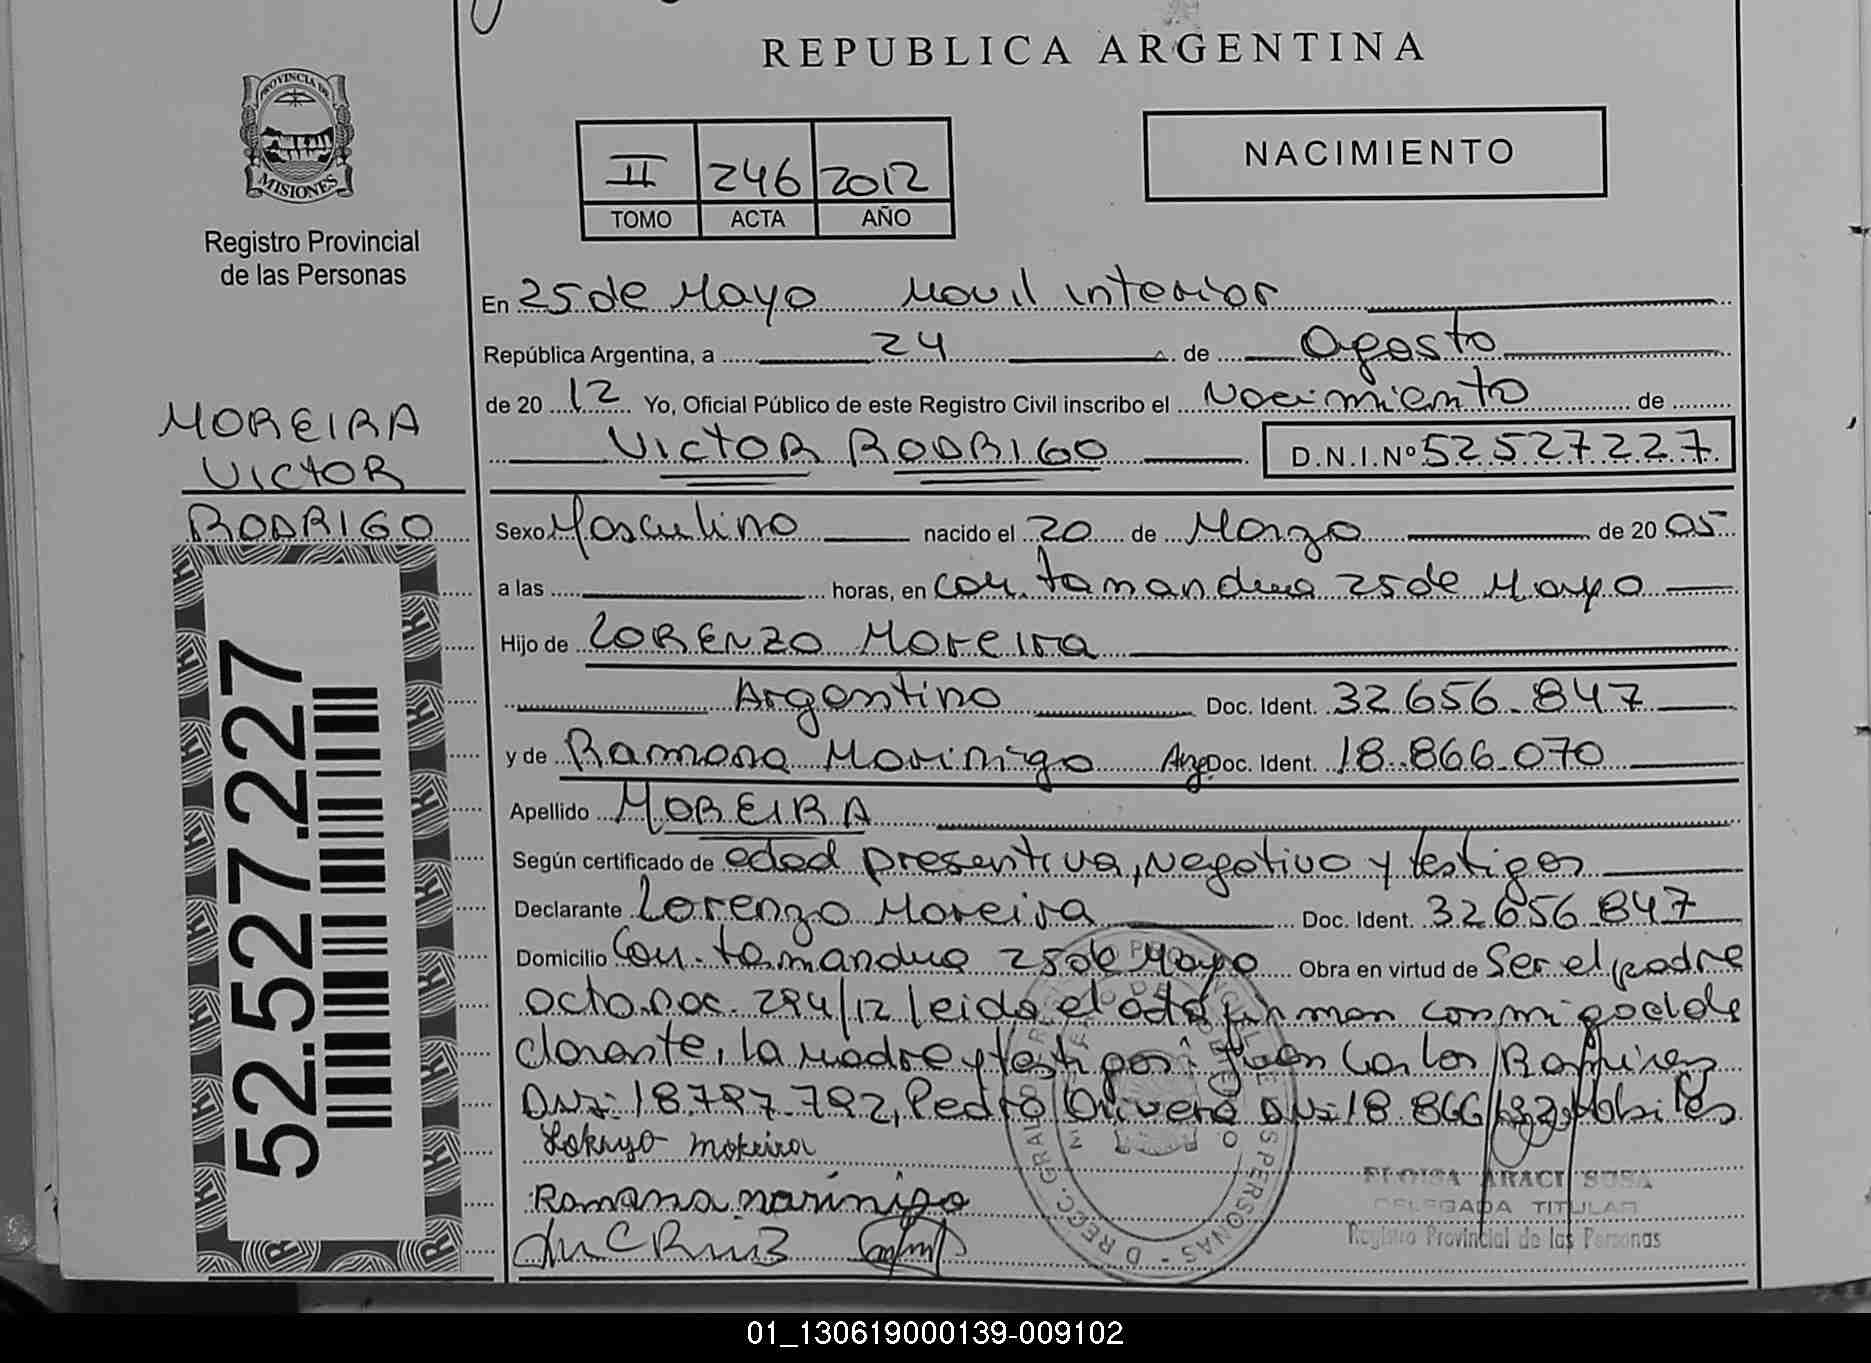 REPUBLICA ARGENTINA
PROVINCIA DE
MISIONES
Registro Provincial
de las Personas
II 246 2012
TOMO ACTA AÑO
NACIMIENTO
En 25 de Mayo Movil interior
República Argentina, a 24 de Agosto
de 20 12 Yo, Oficial Público de este Registro Civil inscribo el Nacimiento de
VICTOR RODRIGO D.N.I.Nº 52527227
MOREIRA
VICTOR
RODRIGO
52.527.227
Sexo Masculino nacido el 20 de Marzo de 20 05
a las horas, en Col. tamandua 25 de Mayo
Hijo de LORENZO Moreira
Argentino Doc. Ident. 32.656.847
y de Ramona Marinigo Arg. Doc. Ident. 18.866.070
Apellido MOREIRA
Según certificado de edad presentiva, Negativo y testigos
Declarante Lorenzo Moreira Doc. Ident. 32656847
Domicilio Col. tamandua 25 de Mayo Obra en virtud de Ser el padre
acta Nac. 294/12 leida el acta firman conmigo el de
clarante, la madre y testigos: Juan Carlos Ramirez
DNI: 18.797.792, Pedro Olivera DNI: 18.866 Habiles
Moreira
Ramona marinigo
ELOISA ARACI SOSA
DELEGADA TITULAR
Registro Provincial de las Personas
01_130619000139-009102